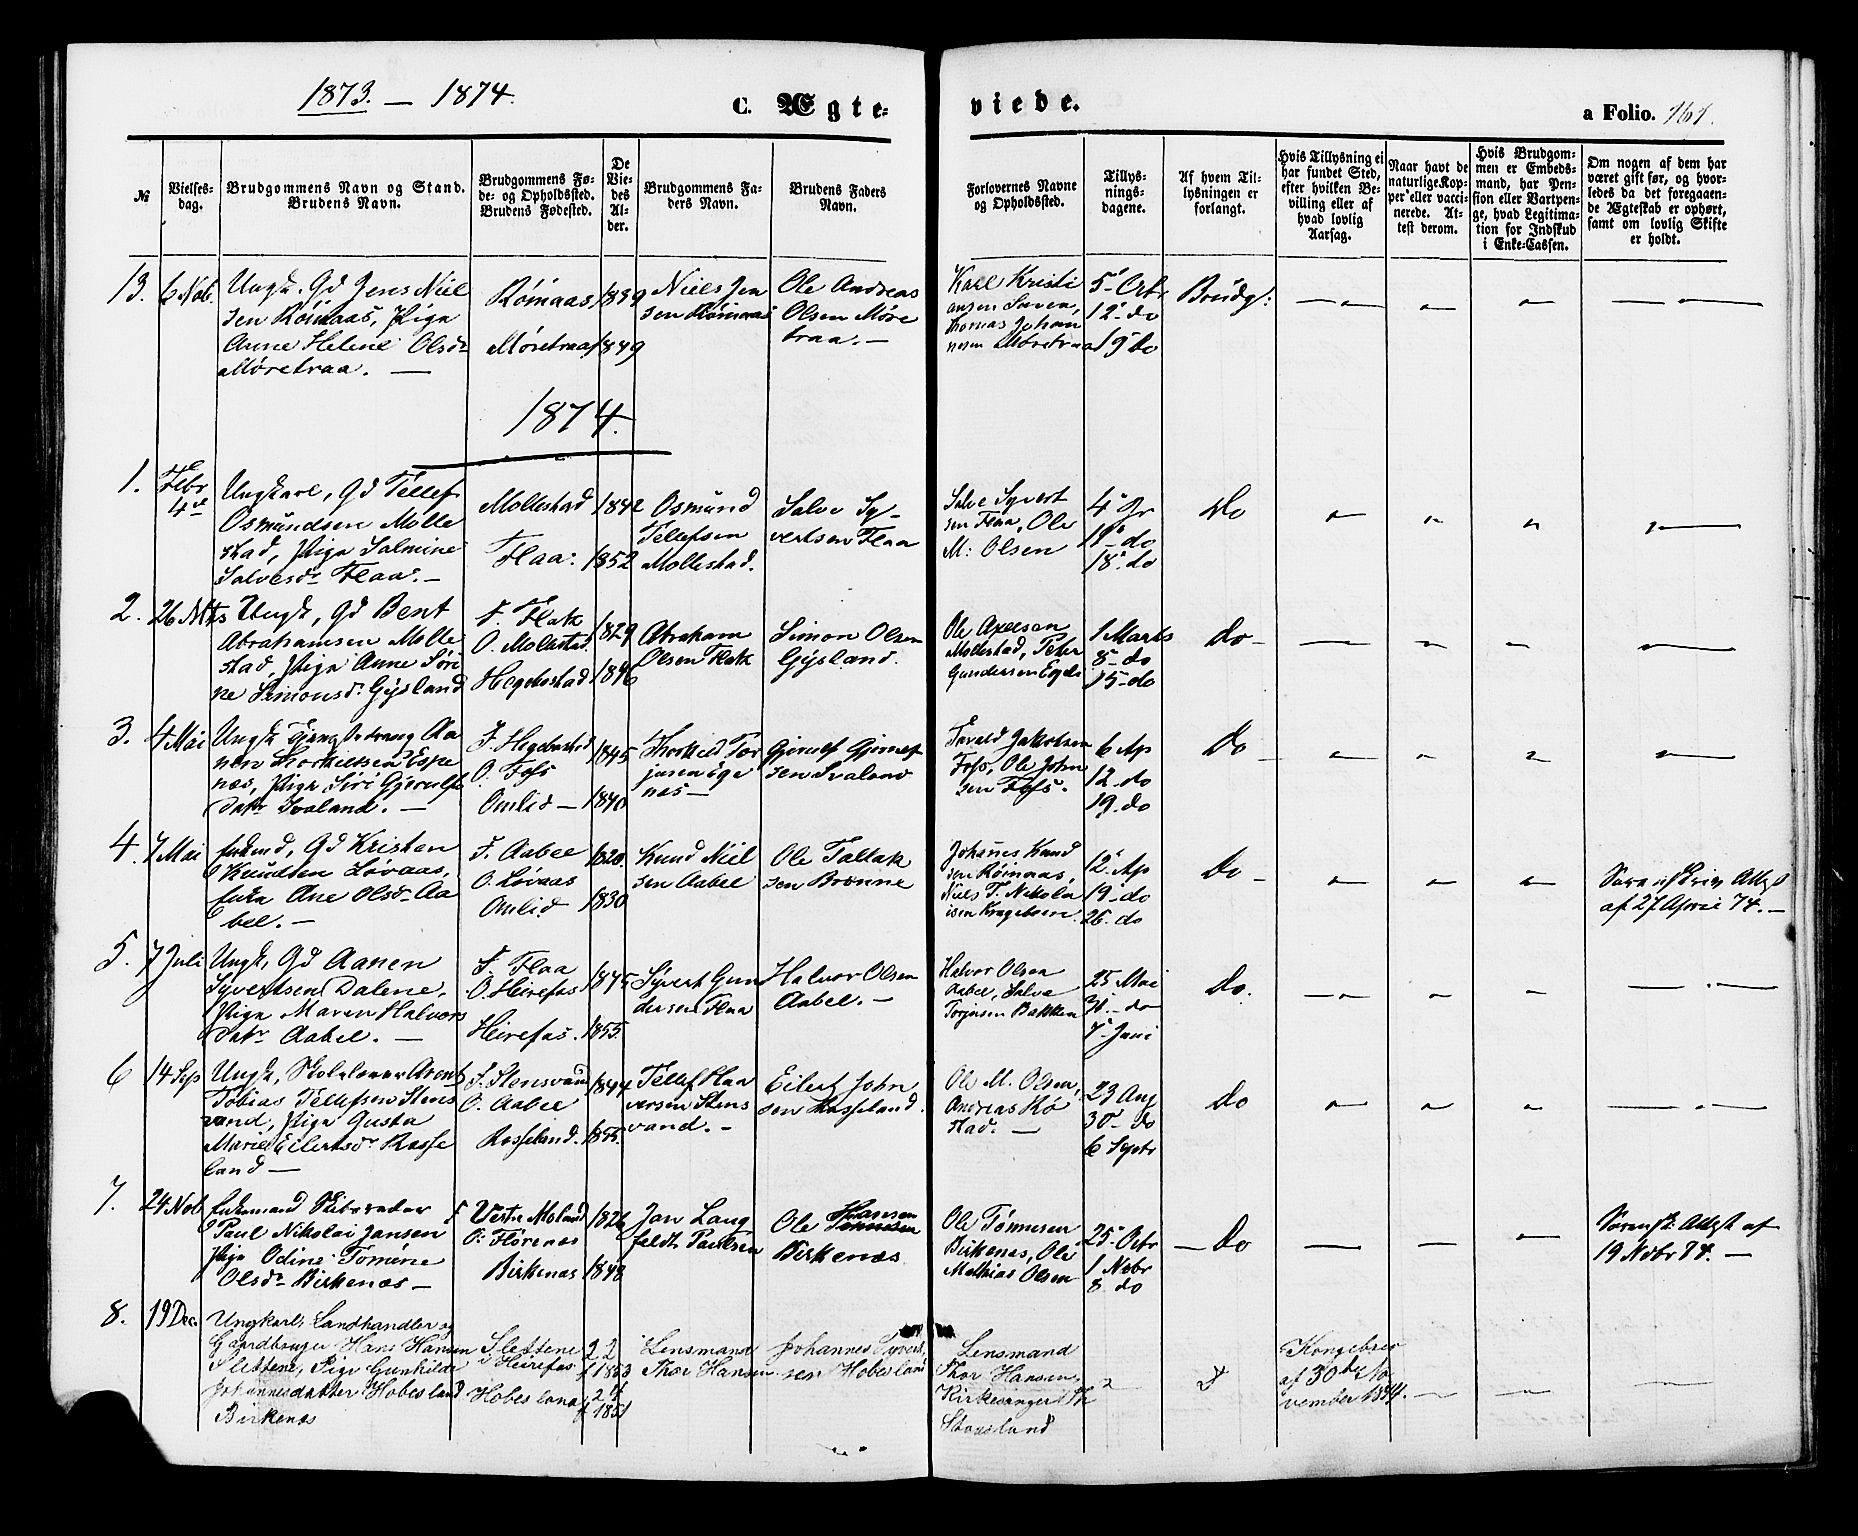 1873. — 1874.
C. Ægte-
viede.
a Folio. 161.
№
Vielses-
dag.
Brudgommens Navn og Stand.
Brudens Navn.
Brudgommens Fø-
de- og Opholdssted.
Brudens Fødested.
De
Vie-
des
Al-
der.
Brudgommens Fa-
ders Navn.
Brudens Faders
Navn.
Forlovernes Navne
og Opholdssted.
Tillys-
nings-
dagene.
Af hvem Til-
lysningen er
forlangt.
Hvis Tillysning ei
har fundet Sted,
efter hvilken Be-
villing eller af
hvad lovlig
Aarsag.
Naar havt de
naturlige Kop-
per eller vacci-
nerede. At-
test derom.
Hvis Brudgom-
men er Embeds-
mand, har Pen-
sion eller Vartpen-
ge, hvad Legitima-
tion for Indskud
i Enke-Cassen.
Om nogen af dem har
været gift før, og hvor-
ledes da det foregaaen-
de Ægteskab er ophørt,
samt om lovlig Skifte
er holdt.
13.
6 Nob.
Ungk. Gd Jens Niel
sen Römaas, Piga
Anne Helene Olsdr
Møretraa. —
Römaas,
Møretraa
1839
1849
Niels Jen
sen Römaas
Ole Andreas
Olsen Møre
traa. —
Karl Kristi
ansen
Thomas Johan
nesen Møretraa
5 Octr
12 do
19 do
Brudg:
1874.
1.
Febr
4de
Ungkarl, Gd Tellef
Osmundsen Molle
stad, Piga Salmine
Salvesdr Flaa. —
Mollestad
Flaa:
1842
1852
Osmund
Tellefsen
Mollestad.
Salve Sy-
vertsen Flaa
Salve Syvert
sen Flaa, Ole
M: Olsen
4 Jr
11 do
18 do
Do
2.
26 Mts
Ungk, Gd Bent
Abrahamsen Molle
stad, Piga Anne Söri
ne Simonsdr Gysland
F. Flak
O. Mollestad.
Hegebostad
1829
1846
Abraham
Olsen Flak
Simon Olsen
Gysland.
Ole Axelsen
Mollestad, Peter
Gundersen
1 Marts
8 do
15 do
Do
3.
4 Mai
Ungk Tjenestedreng Aa
nen Thorkildsen Ege
nes, Piga Siri Gjerulfs
datr Svaland. —
F. Hegebostad
O. Fos
Omlid —
1845
1840
Thorkild Tor
jusen Ege
nes —
Gjerulf Gjerulf
sen Svaland
Tarald Jakobsen
Foss, Ole John
sen Foss.
6 Ap
12 do
19 do
Do
4.
7 Mai
Enkmd, Gd Kristen
Knudsen Løvaas,
Enka Ane Olsdr Aa
bel. —
F. Aabel
O. Løvaas
Omlid
1820
1830
Knud Niel
sen Aabel
Ole Taltak
sen Brønne
Johannes Knud
sen Römaas,
Niels T. Nikola
isen
12 Ap
19 do
26 do
Do
Sorenskriv Attest
af 27 April 74. —
5.
7 Juli
Ungk, Gd Aanen
Syvertsen Dalene,
Piga Maren Halvors
datr Aabel. —
F. Flaa
O. Heirefos
Heirefos.
1845
1855.
Syvert Gun
dersen Flaa
Halvor Olsen
Aabel. —
Halvor Olsen
Aabel, Salve
Torjusen Bakken
25 Mai
31 do
7 Juni
Do.
6
14 Sep
Ungk, Skolelærer Arent
Tobias Tellefsen Stens
vand, Piga Gusta
Marie Eilertsdr Rosse
land —
F. Stensvand
O. Aabel
Rosseland.
1844
1855.
Tellef Haa
versen Stens
vand. —
Eilert John
sen Rosseland.
Ole M. Olsen,
Andreas Rö
stad. —
23 Aug
30 do
6 Septr
Do
7.
24 Nob
Enkemand Skibsreder
Paul Nikolai Jansen
Piga Odine Tomine
Olsdr Birkenæs —
F Vestre Moland
O: Florenæs
Birkenæs
1826
1848
Jan Lang
feldt Paulsen
Ole Hansen
Birkenæs
Ole Tönnesen
Birkenæs, Ole
Mathias Olsen
25 Octr
1 Nobr
8 do
— Do
Sorensk: Attest af
19 Nobr 74. —
8.
19 Dec.
Ungkarl, Landhandler og
Gaardbruger Hans Hansen
Slettene, Pige Gunhilda
Johannesdatter Hobesland
Birkenæs
Slettene
i Heirefos
Hobesland
1853
1851
Lensmand
Thor Hansen
Johannes Syvert
sen Hobesland
Lensmand
Thor Hansen,
Kirkesanger Th
Stousland
Kongebrev
af 30te No
vember 1874.